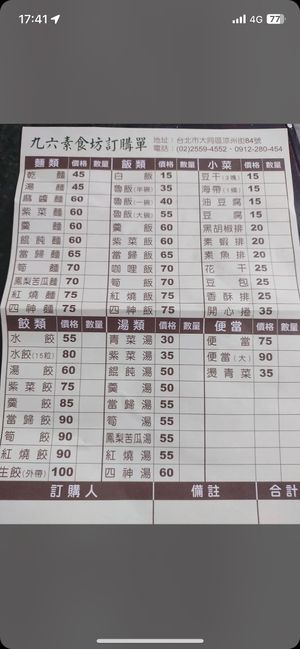 17:41
4G 77
九六素食坊訂購單
地址：台北市大同區涼州街84號
電話：(02)2559-4552、0912-280-454
麵類 價格 數量 飯類 價格 數量 小菜 價格 數量
乾麵 45 白飯 15 豆干(3塊) 15
湯麵 45 魯飯(半碗) 35 海帶(1條) 15
麻醬麵 60 魯飯(一碗) 40 油豆腐 15
紫菜麵 60 魯飯(大碗) 55 豆腐 15
羹麵 60 羹飯 60 黑胡椒排 20
餛飩麵 60 紫菜飯 60 素蝦排 20
當歸麵 65 當歸飯 65 素魚排 20
筍麵 70 咖哩飯 70 花干 25
鳳梨苦瓜麵 70 筍飯 70 豆包 25
紅燒麵 75 紅燒飯 75 香酥排 25
四神麵 75 四神飯 75 開心捲 35
餃類 價格 數量 湯類 價格 數量 便當 價格 數量
水餃 55 青菜湯 30 便當 75
水餃(15粒) 80 紫菜湯 35 便當(大) 90
湯餃 60 餛飩湯 50 燙青菜 35
紫菜餃 75 羹湯 50
羹餃 85 當歸湯 55
當歸餃 90 筍湯 55
筍餃 90 鳳梨苦瓜湯 55
紅燒餃 90 紅燒湯 55
生餃(外帶) 100 四神湯 60
訂購人 備註 合計